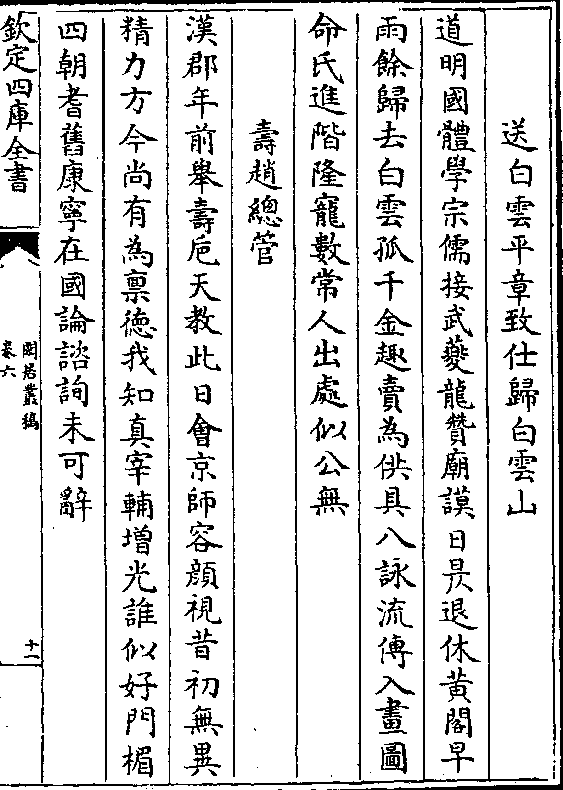 送白雲平章致仕歸白雲山
道明國體學宗儒接武夔龍贊廟謨日昃退休黄閣早
雨餘歸去白雲孤千金趣賣為供具八詠流傳入畫圖
命氏進階隆寵數常人出處似公無
壽趙總管
漢郡年前舉壽巵天教此日會京師容顔視昔初無異
精力方今尚有為禀德我知真宰輔增光誰似好門楣
四朝耆舊康寧在國論諮詢未可辭
欽定四庫全書
閒居叢稿
卷六
十一